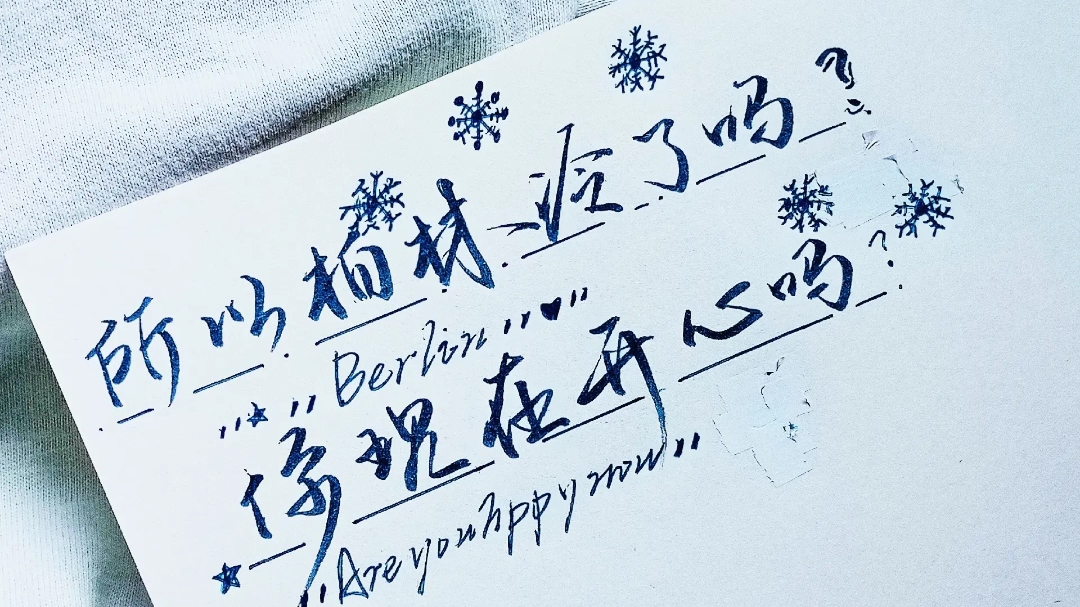 所以柏林冷了吗?
"Berlin"
你现在开心吗?
"Are you hppy now"